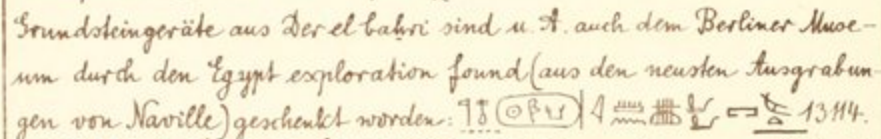 Grundsteingeräte aus Der el bahri sind u. A. auch dem Berliner Muse-
um durch den Egypt exploration found (aus den neusten Ausgrabun-
gen von Naville) geschenkt worden: 13114.